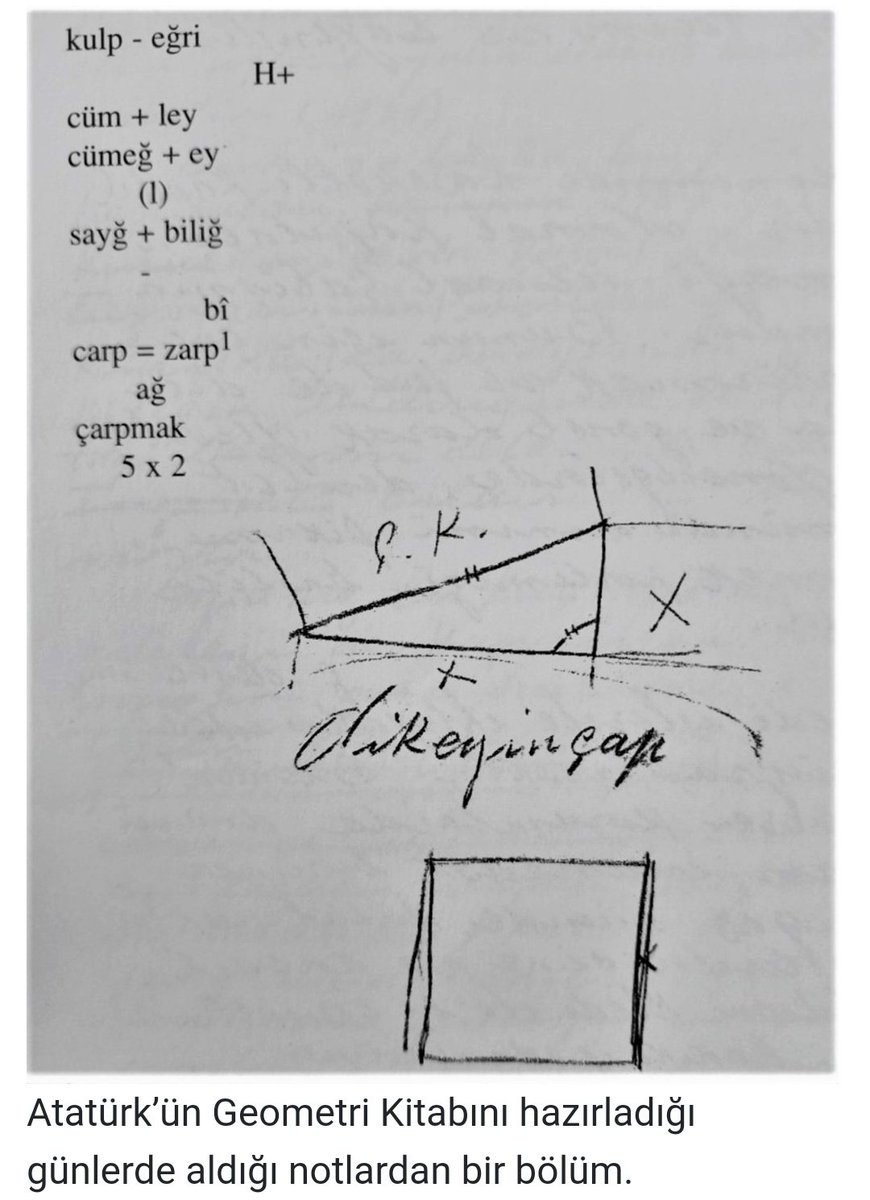 kulp - eğri
H+
cüm + ley
cümeğ + ey
(l)
sayğ + biliğ
-
bî
carp = zarp¹
ağ
çarpmak
5 x 2
Ç. K.
X
x
dikeyinçap
Atatürk’ün Geometri Kitabını hazırladığı
günlerde aldığı notlardan bir bölüm.